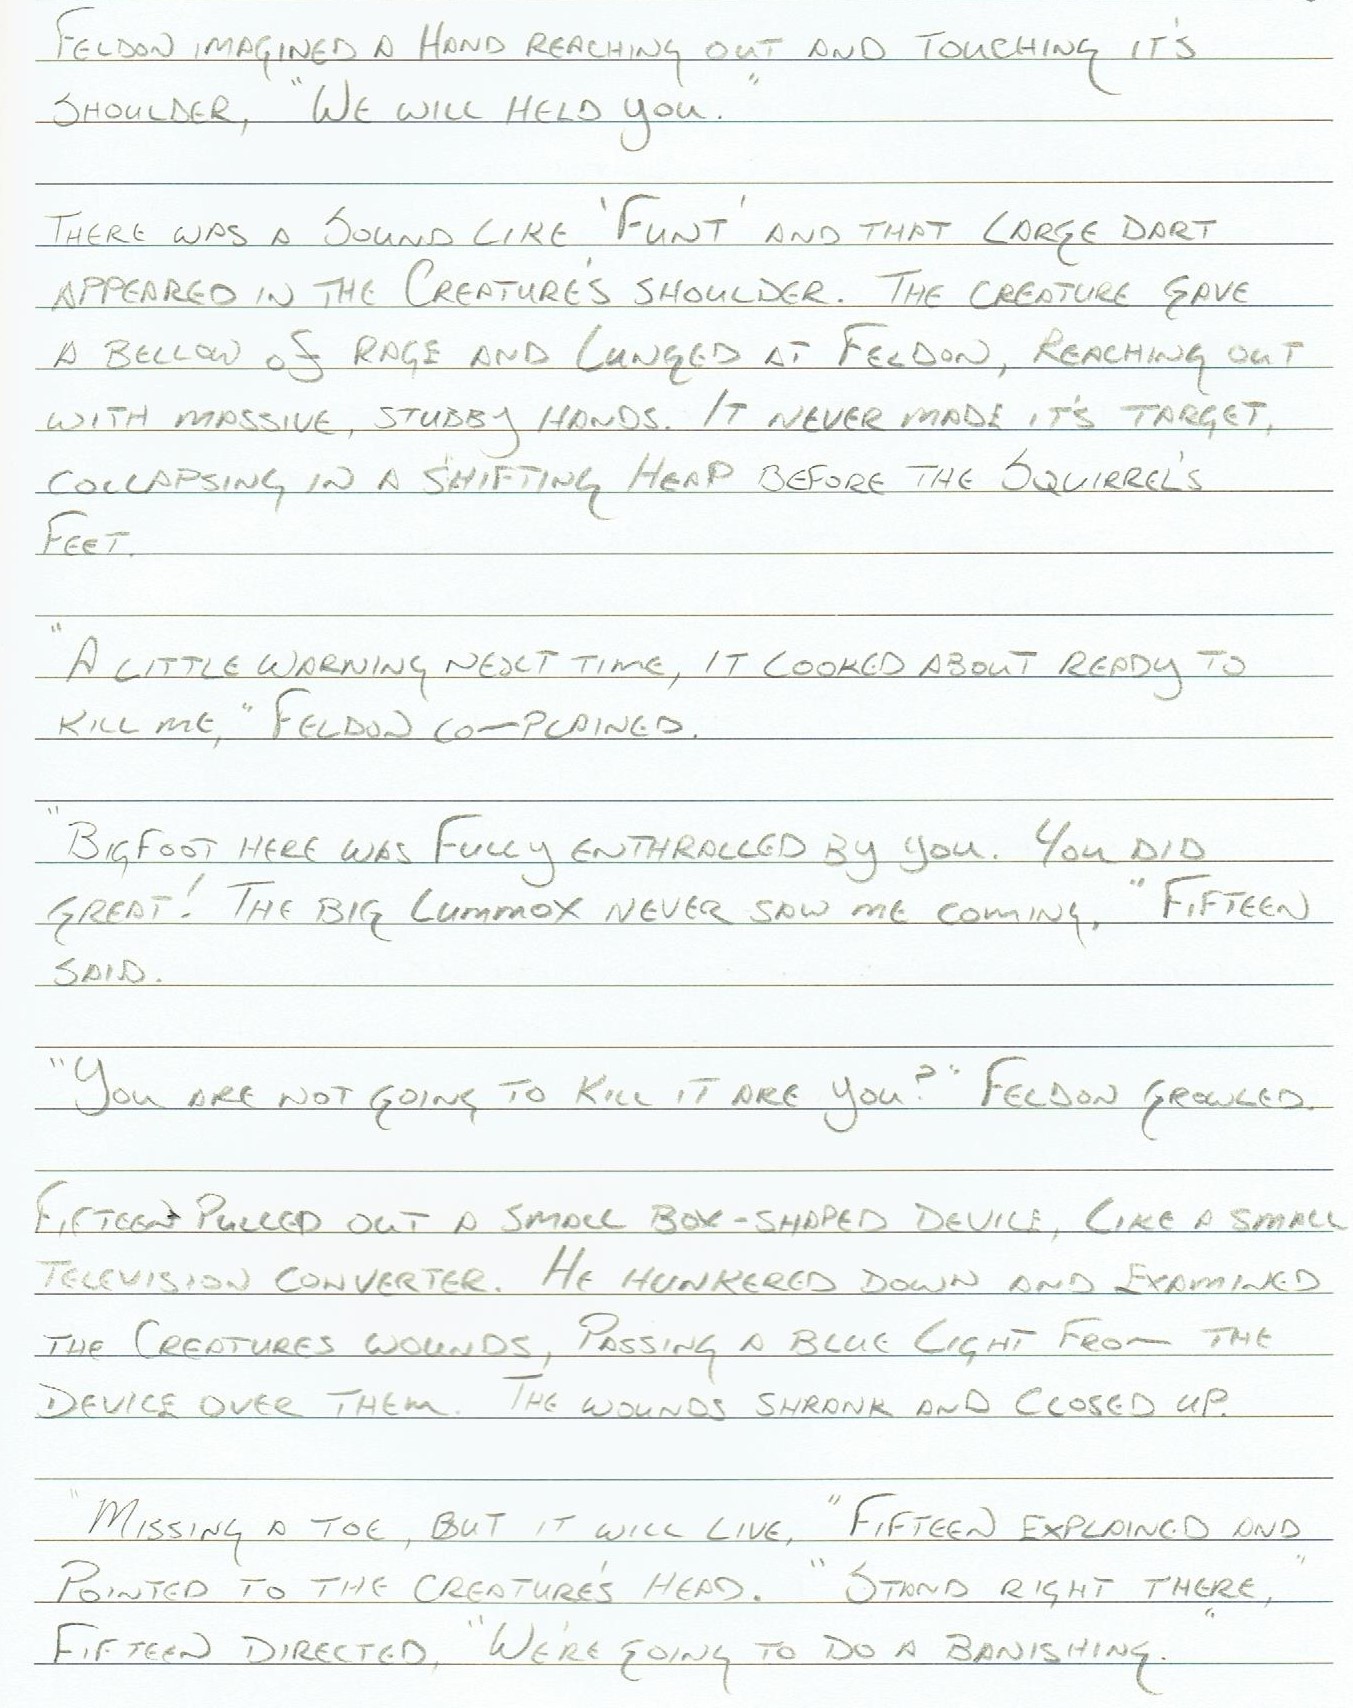 Feldon imagined a hand reaching out and touching it's
shoulder, "We will held you."
There was a sound like 'Funt' and that large dart
appeared in the creature's shoulder. The creature gave
a bellow of rage and lunged at Feldon, reaching out
with massive, stubby hands. It never made it's target,
collapsing in a shifting heap before the squirrel's
feet.
"A little warning next time, it looked about ready to
kill me," Feldon complained.
"Bigfoot here was fully enthralled by you. You did
great! The big lummox never saw me coming," Fifteen
said.
"You are not going to kill it are you?" Feldon growled.
Fifteen pulled out a small box-shaped device, like a small
television converter. He hunkered down and examined
the creatures wounds, passing a blue light from the
device over them. The wounds shrank and closed up.
"Missing a toe, but it will live," Fifteen explained and
pointed to the creature's head. "Stand right there,"
Fifteen directed, "We're going to do a banishing."